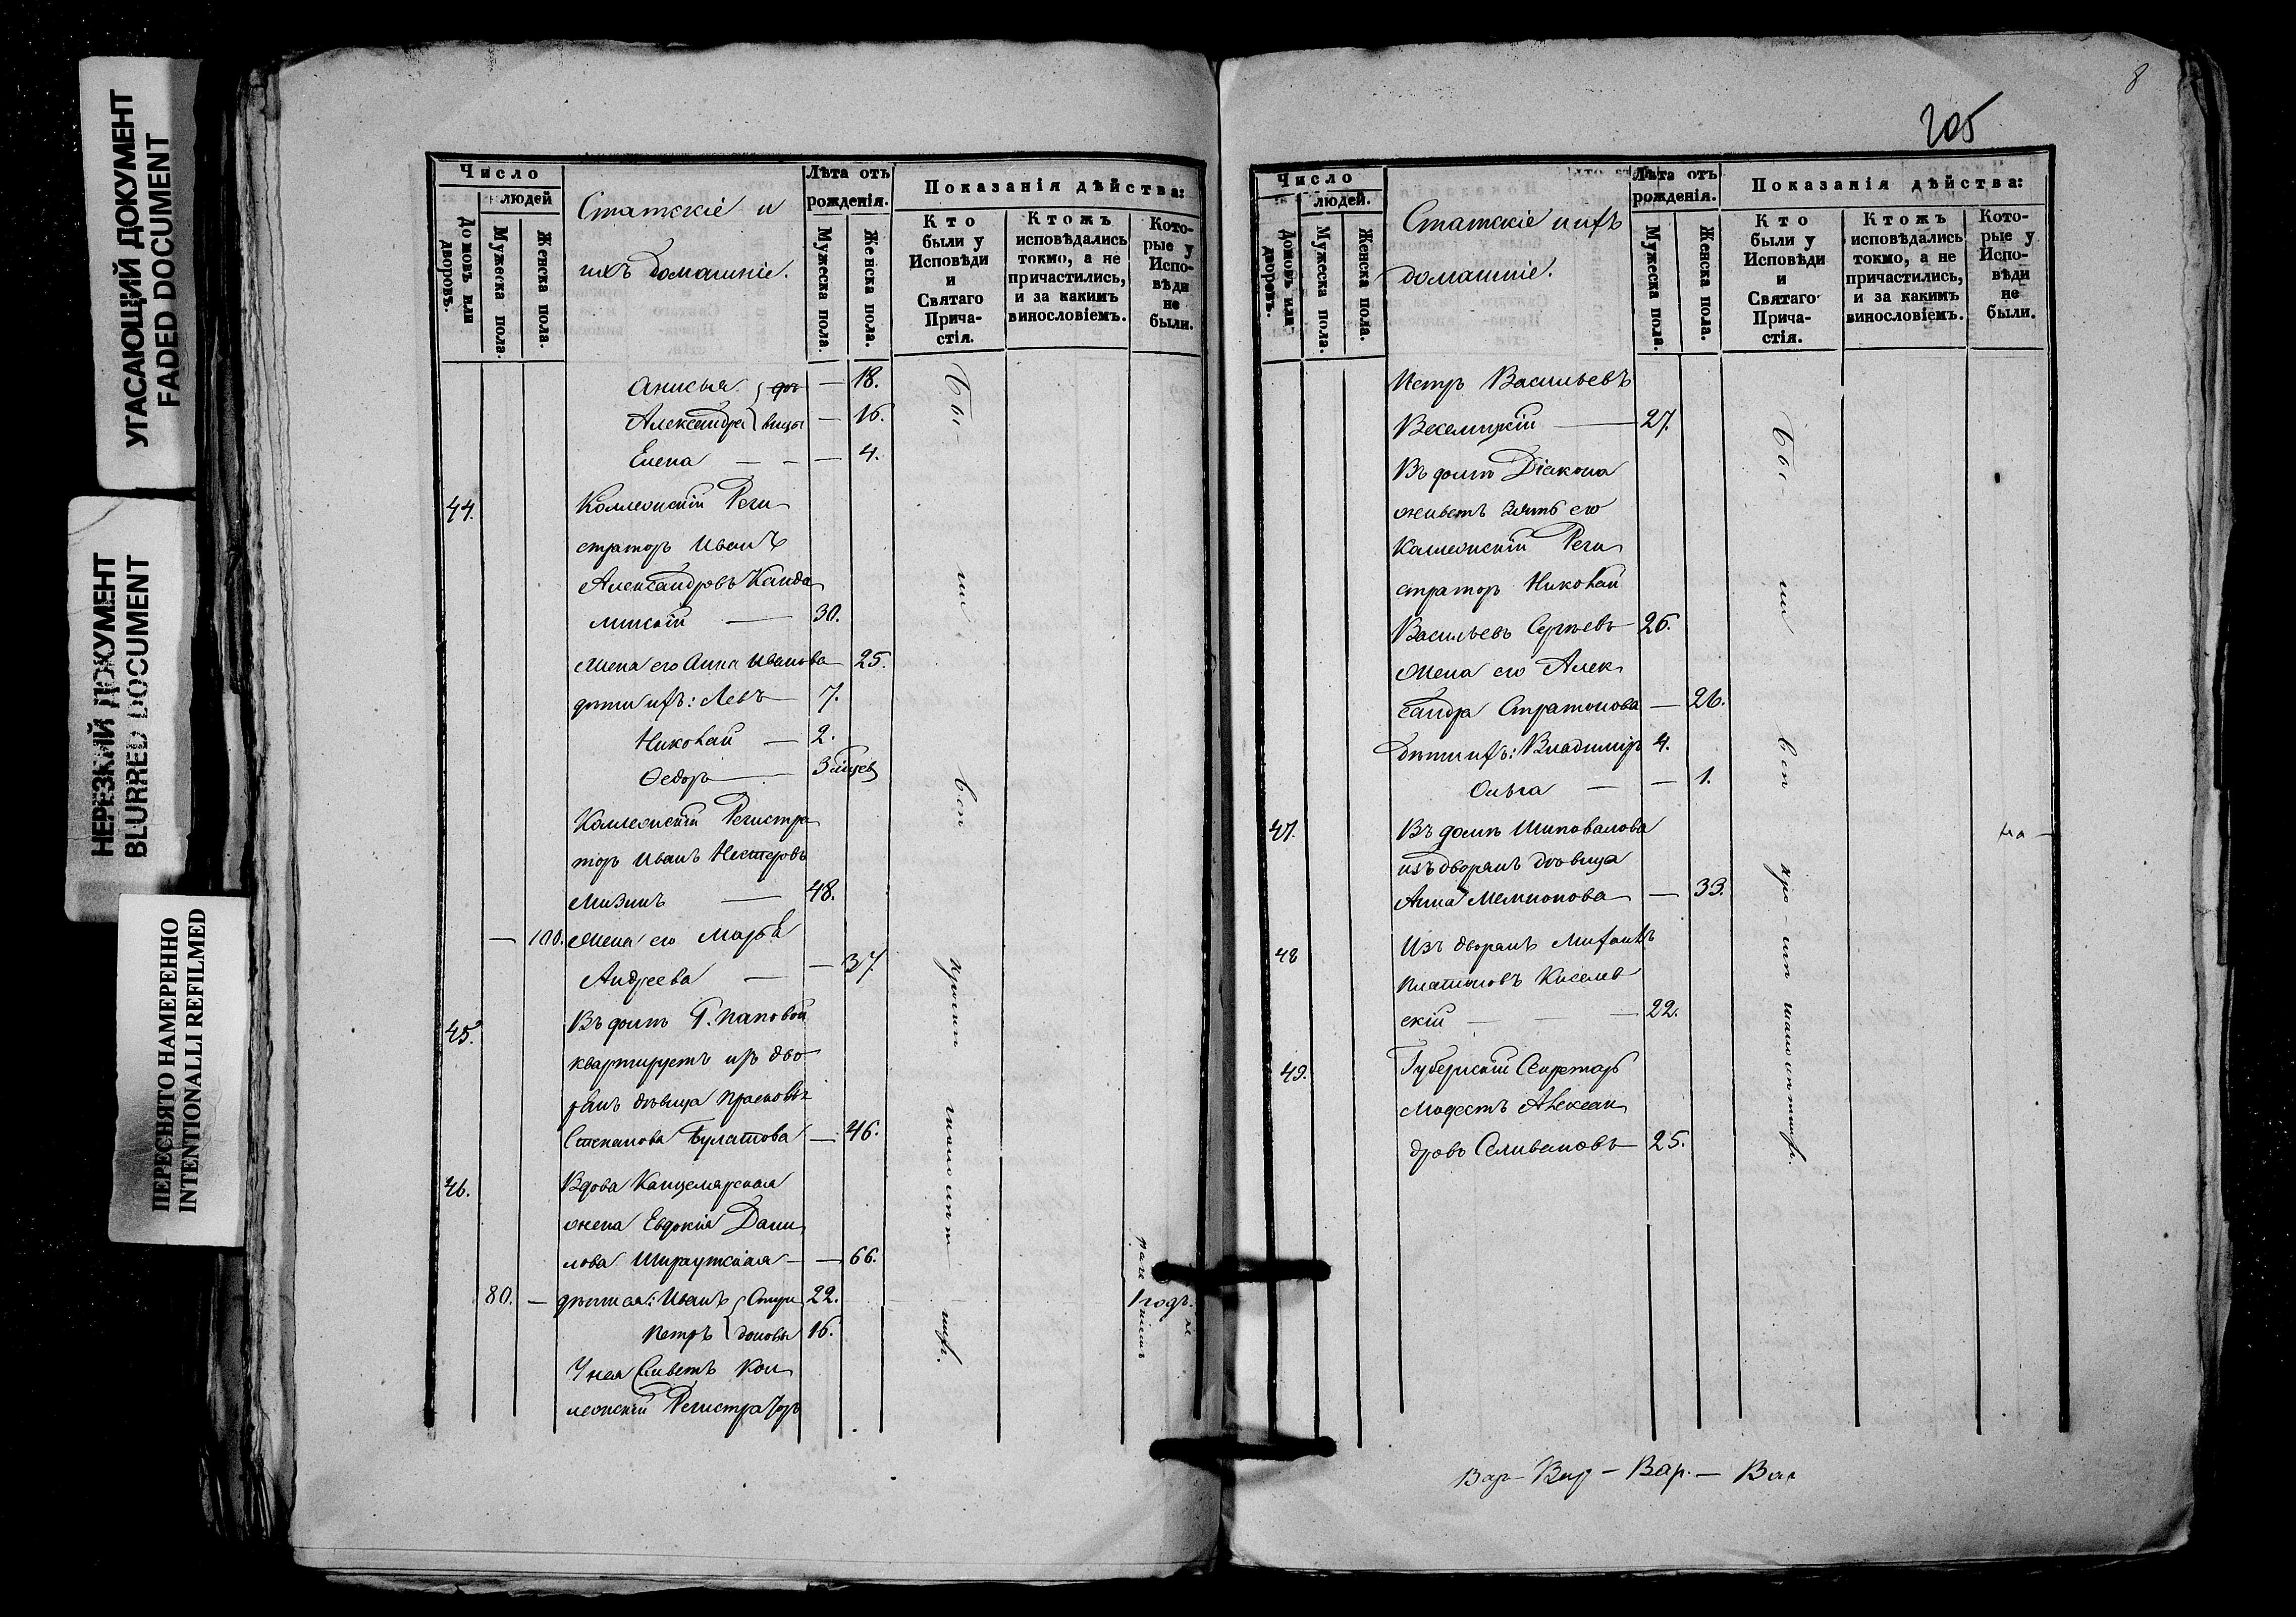 УГАСАЮЩИЙ ДОКУМЕНТ
FADED DOCUMENT
НЕРЕЗКИЙ ДОКУМЕНТ
BLURRED DOCUMENT
ПЕРЕСНЯТО НАМЕРЕННО
INTENTIONALLI REFILMED
Число
людей
Домовъ или дворовъ.
Мужеска пола.
Женска пола.
Статскіе и
ихъ домашніе.
Лѣта отъ рожденія.
Мужеска пола.
Женска пола.
Показанія дѣйства:
Кто были у Исповѣди и Святаго Прича-стія.
Ктожъ исповѣдались токмо, а не причастились, и за какимъ винословіемъ.
Кото-рые у Испо-вѣди не были.
Анисья — 18.
Александра вицы — 16.
Елена — — — 4.
44. Коллежскій Реги
страторъ Иванъ
Александровъ Канда
линскій — 30.
Жена его Анна Иванова 25.
дѣти ихъ: Левъ — 7.
Николай — 2.
Ѳедоръ — 3 мѣсяц
Коллежскій Регистра
торъ Иванъ Нестеровъ
Мизинъ — 48.
— 100. Жена его Марѳа
Андреева — — 37.
45. Въ домѣ Г. Паповой
квартируетъ изъ дво
рянъ дѣвица Прасковья
Степанова Булатова — 46.
46. Вдова Канцелярская
жена Евдокія Дани
лова — — 66.
80. — дѣти ея: Иванъ Сту 22.
Петръ доновы 16.
У нея живетъ Кол
лежскій Регистраторъ
Бы-
ли
всѣ
кромѣ
8
205
Число
людей.
Домовъ или дворовъ.
Мужеска пола.
Женска пола.
Статскіе и ихъ
домашніе.
Лѣта отъ рожденія.
Мужеска пола.
Женска пола.
Показанія дѣйства:
Кто были у Исповѣди и Святаго Прича-стія.
Ктожъ исповѣдались токмо, а не причастились, и за какимъ винословіемъ.
Кото-рые у Испо-вѣди не были.
Петръ Васильевъ
Веселицкій — 27.
Въ домѣ Діакона
живетъ зять его
Коллежскій Реги
страторъ Николай
Васильевъ Сергѣевъ — 26.
Жена его Алек
сандра Стратонова — 26.
Дѣти ихъ: Владиміръ 4.
Ольга — — 1.
47. Въ домѣ Шиповалова
изъ дворянъ дѣвица
Анна Мемнонова — 33.
48 Изъ дворянъ Михаилъ
Платоновъ Киселев
скій — — 22.
49. Губернскій Секретарь
Модестъ Алексан
дровъ Селивановъ — 25.
Бы-
ли
всѣ
кро-мѣ
Вар — Вар — Вар. — Вар